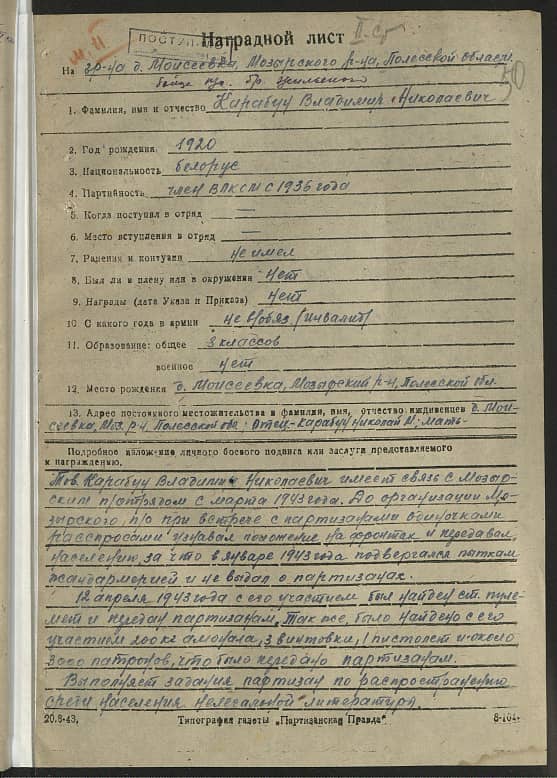 II ст
ПОСТУП
Наградной лист
На гр-на д. Моисеевка, Мозырского р-на, Полесской области
50
1. Фамилия, имя и отчество Карабун Владимир Николаевич
2. Год рождения 1920
3. Национальность белорус
4. Партийность член ВЛКСМ с 1936 года
5. Когда поступил в отряд —
6. Место вступления в отряд —
7. Ранения и контузии не имел
8. Был ли в плену или в окружении нет
9. Награды (дата Указа и Приказа) нет
10. С какого года в армии не в/обяз (инвалит)
11. Образование: общее 3 классов
военное нет
12. Место рождения д. Моисеевка, Мозырский р-н, Полесской обл.
13. Адрес постоянного местожительства и фамилия, имя, отчество иждивенцев д. Мои-
сеевка, Моз. р-н, Полесской обл: Отец - Карабун Николай И; мать-
Подробное изложение личного боевого подвига или заслуги представляемого
к награждению.
Тов. Карабун Владимир Николаевич имеет связь с Мозыр-
ским п/отрядом с марта 1943 года. До организации Мо-
зырского, п/о при встрече с партизанами одиночками
расспросами узнавал положение на фронтах и передавал
населению за что в январе 1943 года подвергался пыткам
жандармерией и не выдал о партизанах.
12 апреля 1943 года с его участием был найден ст. пуле-
мет и передан партизанам. Так же, было найдено с его
участием 200 кг амонала, 3 винтовки, 1 пистолет и около
3000 патронов, что было передано партизанам.
Выполняет задания партизан по распространению
среди населения нелегальной литературы.
20.8-43, Типография газеты „Партизанская Правда" 8-104